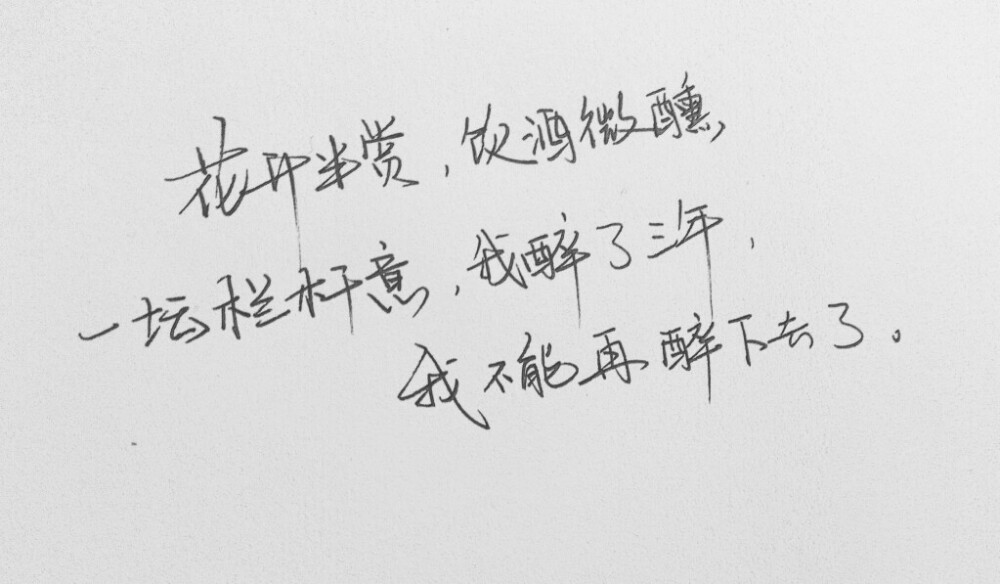 花开半赏,饮酒微醺,
一坛栏杆意,我醉了三年,
我不能再醉下去了。